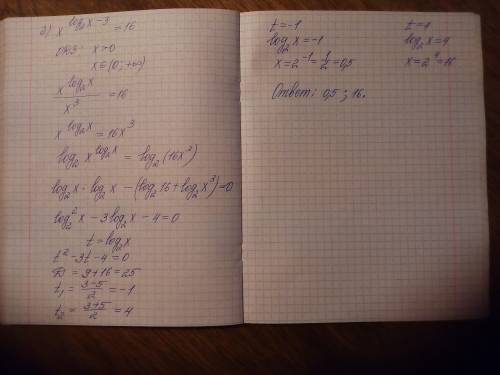 a) x^(log₂x-3) = 16
ОДЗ: x>0
x∈(0; +∞)
x^(log₂x) / x³ = 16
x^(log₂x) = 16x³
log₂ x^(log₂x) = log₂ (16x³)
log₂x · log₂x - (log₂16 + log₂x³) = 0
log₂²x - 3log₂x - 4 = 0
t = log₂x
t² - 3t - 4 = 0
D = 9+16 = 25
t₁ = (3-5)/2 = -1
t₂ = (3+5)/2 = 4
t = -1
log₂x = -1
x = 2⁻¹ = 1/2 = 0,5
t = 4
log₂x = 4
x = 2⁴ = 16
Ответ: 0,5 ; 16.